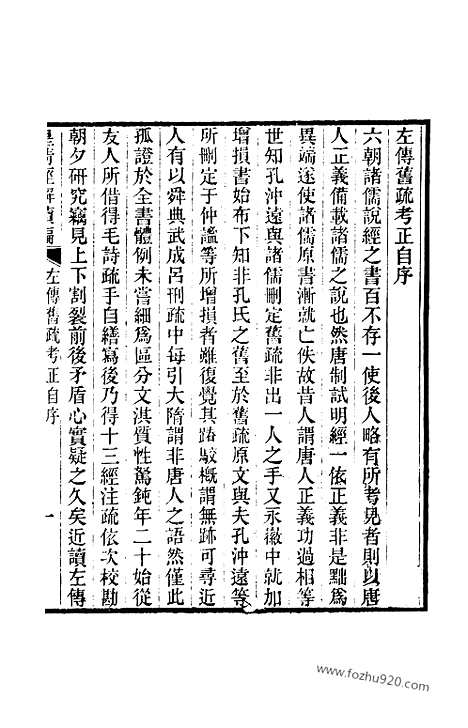 左傳舊疏考正自序
六朝諸儒說經之書百不存一使後人略有所考見者則以唐
人正義備載諸儒之說也然唐制試明經一依正義非是黜爲
異端遂使諸儒原書漸就亡佚故昔人謂唐人正義功過相等
世知孔沖遠與諸儒刪定舊疏非出一人之手又永徽中就加
增損書始布下知非孔氏之舊至於舊疏原文與夫孔沖遠等
所刪定于仲謐等所增損者雖復覺其踳駁概謂無跡可尋近
人有以舜典武成呂刑疏中每引大隋謂非唐人之語然僅此
孤證於全書體例未嘗細爲區分文淇質性駑鈍年二十始從
友人所借得毛詩疏手自繕寫後乃得十三經注疏依次校勘
朝夕研究竊見上下割裂前後矛盾心實疑之久矣近讀左傳
皇清經解續編
左傳舊疏考正自序
一
www.fozhu920.com